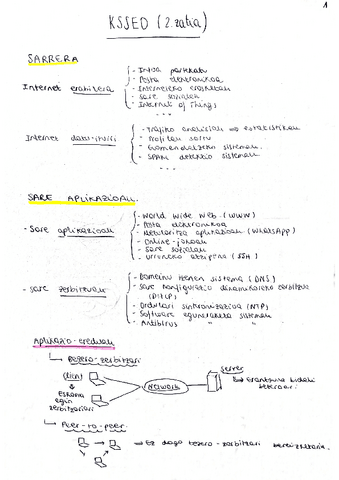 1
KSSED (2. zatia)
SARRERA
Internet erabilera
- Infoa partekatu
- Posta elektronikoa
- Interneteko erosketak
- Sare sozialak
- Internet of Things
...
Internet datu-iturri
- Trafiko analisiak => estatistikak
- Profilak sortu
- Gomendatzeko sistemak
- SPAM detekzio sistemak
...
SARE APLIKAZIOAK.
- Sare aplikazioak
- World Wide Web (WWW)
- Posta elektronikoa
- Mezularitza aplikazioak (WhatsApp)
- Online-jokoak
- Sare sozialak
- Urruneko atzipena (SSH)
- Sare zerbitzuak
- Domeinu izenen sistema (DNS)
- Sare konfigurazio dinamikoaren zerbitzua
(DHCP)
- Ordulari sinkronizazioa (NTP)
- Software eguneraketa sistemak
- Antibirus " "
Aplikazio-ereduak
Bezero-zerbitzari
client
Eskaera
egin
zerbitzariari
Network
server
Erantzuna bidali
bezeroari
Peer-to-peer.
Ez dago bezero-zerbitzari bereizketarik.